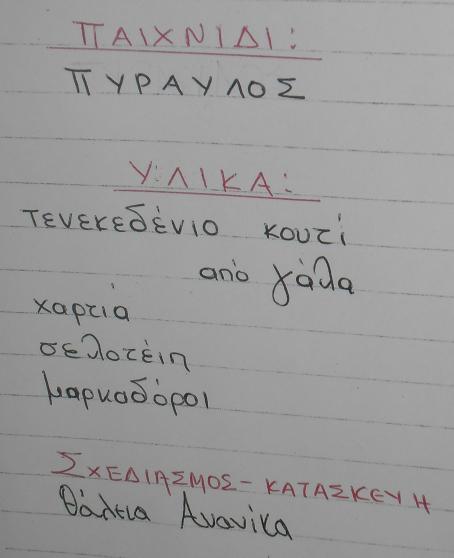 ΠΑΙΧΝΙΔΙ:
ΠΥΡΑΥΛΟΣ
ΥΛΙΚΑ:
τενεκεδένιο κουτί
από γάλα
χαρτιά
σελοτέιπ
μαρκαδόροι
ΣΧΕΔΙΑΣΜΟΣ-ΚΑΤΑΣΚΕΥΗ
Θάλεια Ανανίκα